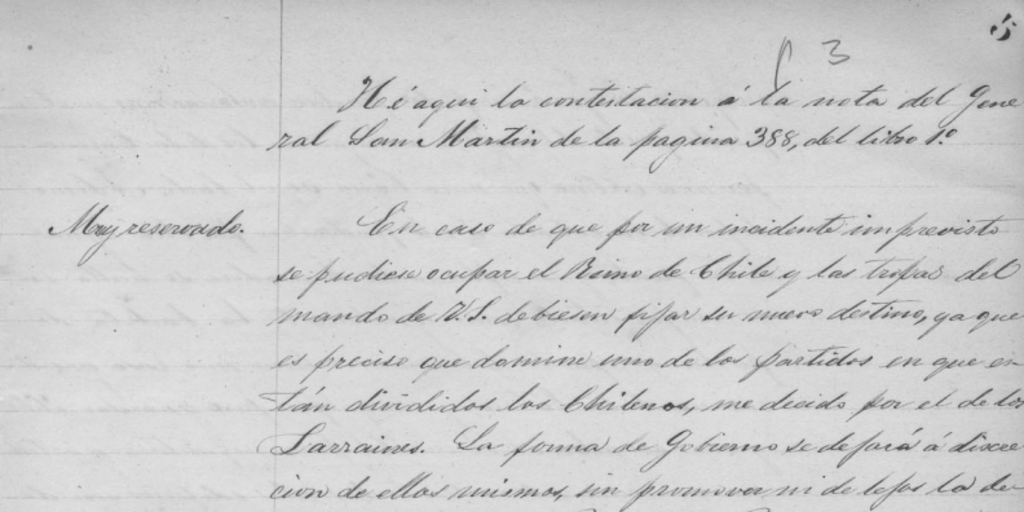 5
3
Hé aqui la contestacion á la nota del Gene
ral San Martin de la pagina 388, del libro 1.º
Muy reservado.
En caso de que por un incidente imprevisto
se pudiese ocupar el Reino de Chile y las tropas del
mando de V.S. debiesen fijar su nuevo destino, ya que
es preciso que domine uno de los partidos en que en
tán divididos los Chilenos, me decido por el de los
Larraines. La forma de Gobierno se dejará á discre
cion de ellos mismos, sin promover ni de lejos la de